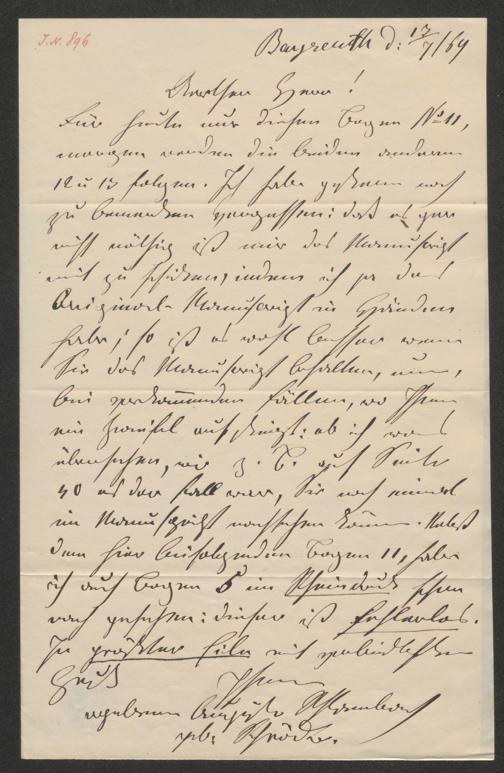 J.N. 896
Bayreuth d: 17/7/69
Werther Herr!
Für heute nur diesen Bogen No 11,
morgen werden die beiden anderen
12 u 13 folgen. Ich habe gestern noch
zu bemerken vergessen: daß es gar
nicht nöthig ist mir das Manuscript
mit zu schicken, indem ich ja das
Original-Manuscript in Händen
habe; so ist es wohl besser wenn
Sie das Manuscript behalten, um,
bei vorkommenden Fällen, wo Ihnen
ein Zweifel aufsteigt: ob ich was
übersehen, wie z. B. auf Seite
40 es der Fall war, Sie noch einmal
im Manuscript nachsehen können. Nebst
dem hier beifolgenden Bogen 11, habe
ich auch Bogen 5 im Reindruck schon
nach gesehen: dieser ist fehlerlos.
In größter Eile mit verbindlichstem
Gruß
Ihnen
ergebener Auguste
geb: Schröder.